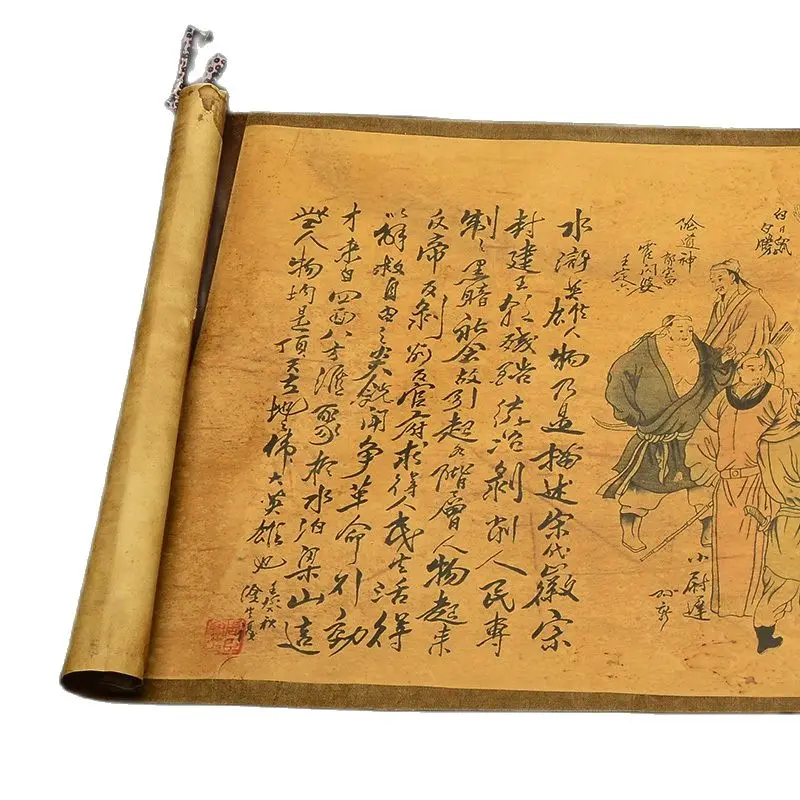 白日鼠
險道神
霍閃婆
王定六
小尉遲
孫新
水滸英雄人物乃是描述宋代徽宗
封建王朝殘酷統治剝削人民專
制之黑暗社會故引起各階層人物起来
反帝反剝削反官府求得人民生活得
以解救自由之開爭革命行動
才来自四面八方滙聚於水泊梁山這
些人物均是頂天立地之偉大英雄也